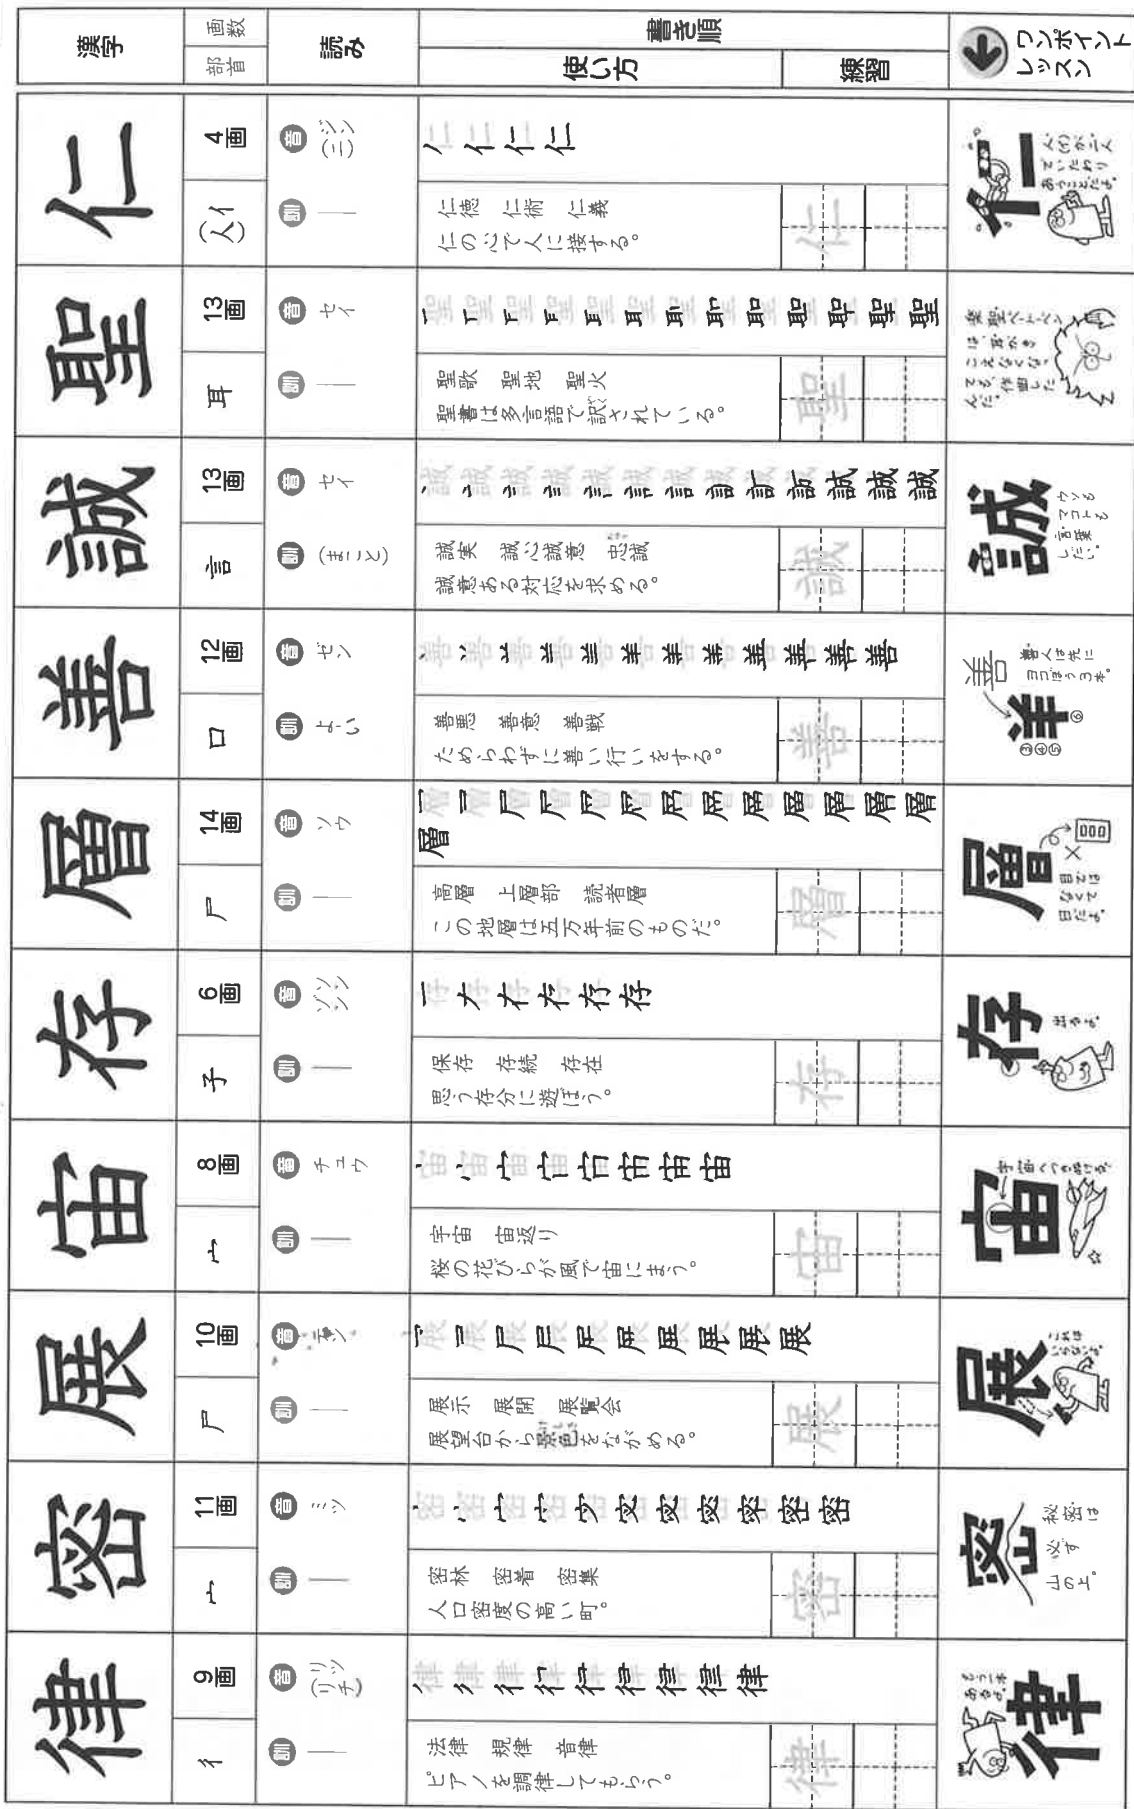 漢字
画数
部首
読み
書き順
使い方
練習
ワンポイント
レッスン
仁
4画
(人)イ
音 ジン
(ニ)
訓 —
仁 仁 仁 仁
仁徳 仁術 仁義
仁の心で人に接する。
仁
仁
人(イ)が二人
でいたわり
あうことだよ。
聖
13画
耳
音 セイ
訓 —
聖
聖歌 聖地 聖火
聖書は多言語で訳されている。
聖
楽聖ベートーベン
は、耳がき
こえなくなっ
ても、作曲した
んだ。
誠
13画
言
音 セイ
訓 (まこと)
誠
誠実 誠心誠意 忠誠
誠意ある対応を求める。
誠
誠
ウソも
マコトも
言葉
しだい。
善
12画
口
音 ゼン
訓 よい
善
善悪 善意 善戦
ためらわずに善い行いをする。
善
善
善人は先に
ヨコぼう3本。
③④⑤
⑥
層
14画
尸
音 ソウ
訓 —
層
高層 上層部 読者層
この地層は五万年前のものだ。
層
層
目では
なくて
日だよ。
存
6画
子
音 ソン
ゾン
訓 —
存
保存 存続 存在
思う存分に遊ぼう。
存
存
出るよ。
宙
8画
宀
音 チュウ
訓 —
宙
宇宙 宙返り
桜の花びらが風で宙にまう。
宙
宙
宇宙へつきぬける。
展
10画
尸
音 テン
訓 —
展
展示 展開 展覧会
展望台から景色をながめる。
展
展
これは
いらないよ。
密
11画
宀
音 ミツ
訓 —
密
密林 密着 密集
人口密度の高い町。
密
密
秘密は
必ず
山の上。
律
9画
彳
音 リツ
(リチ)
訓 —
律
法律 規律 音律
ピアノを調律してもらう。
律
律
もう一本
あるよ。